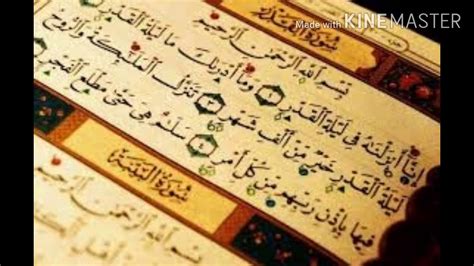 Made with KINEMASTER
سُورَةُ القَدْرِ
بِسْمِ اللَّهِ الرَّحْمَٰنِ الرَّحِيمِ
إِنَّا أَنزَلْنَٰهُ فِي لَيْلَةِ الْقَدْرِ ١ وَمَا أَدْرَىٰكَ مَا لَيْلَةُ الْقَدْرِ ٢
لَيْلَةُ الْقَدْرِ خَيْرٌ مِّنْ أَلْفِ شَهْرٍ ٣ تَنَزَّلُ الْمَلَٰئِكَةُ وَالرُّوحُ
فِيهَا بِإِذْنِ رَبِّهِم مِّن كُلِّ أَمْرٍ ٤ سَلَٰمٌ هِيَ حَتَّىٰ مَطْلَعِ الْفَجْرِ
سُورَةُ البَيِّنَةِ
بِسْمِ اللَّهِ الرَّحْمَٰنِ الرَّحِيمِ